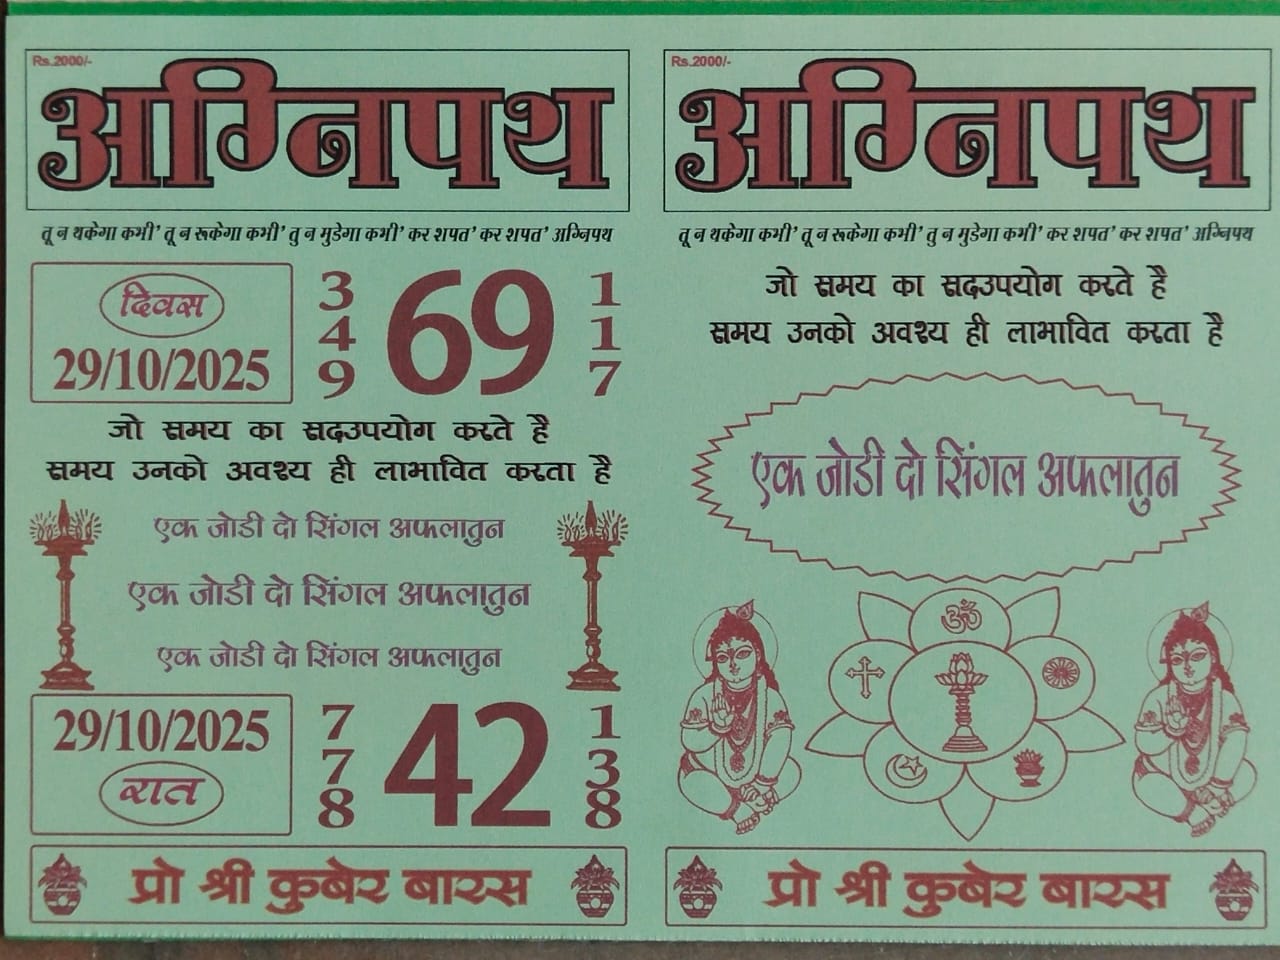 Rs.2000/-
अग्निपथ
तू न थकेगा कभी' तू न रूकेगा कभी' तु न मुडेगा कभी' कर शपत' कर शपत' अग्निपथ
दिवस
29/10/2025
3 69 1
4 1
9 7
जो समय का सदउपयोग करते है
समय उनको अवश्य ही लाभावित करता है
एक जोडी दो सिंगल अफलातुन
एक जोडी दो सिंगल अफलातुन
एक जोडी दो सिंगल अफलातुन
29/10/2025
रात
7 42 1
7 3
8 8
प्रो श्री कुबेर बारस
Rs.2000/-
अग्निपथ
तू न थकेगा कभी' तू न रूकेगा कभी' तु न मुडेगा कभी' कर शपत' कर शपत' अग्निपथ
जो समय का सदउपयोग करते है
समय उनको अवश्य ही लाभावित करता है
एक जोडी दो सिंगल अफलातुन
ॐ
प्रो श्री कुबेर बारस